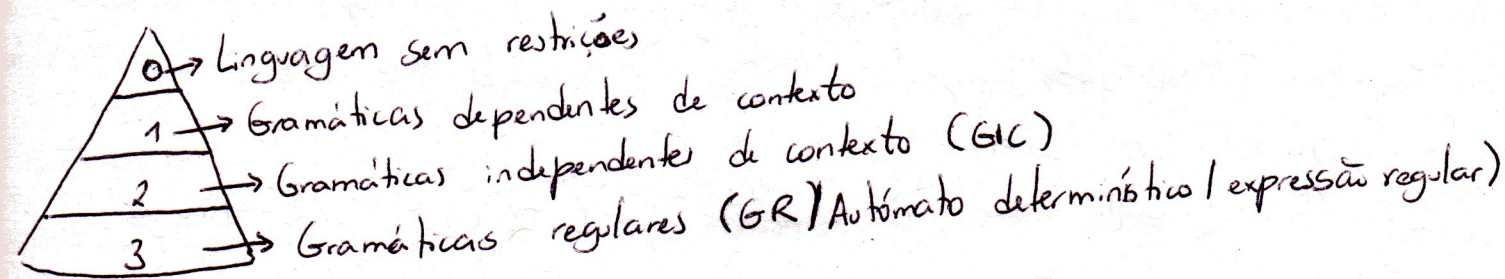 0 → Linguagem sem restrições
1 → Gramáticas dependentes de contexto
2 → Gramáticas independentes de contexto (GIC)
3 → Gramáticas regulares (GR) Autómato determinístico / expressão regular)